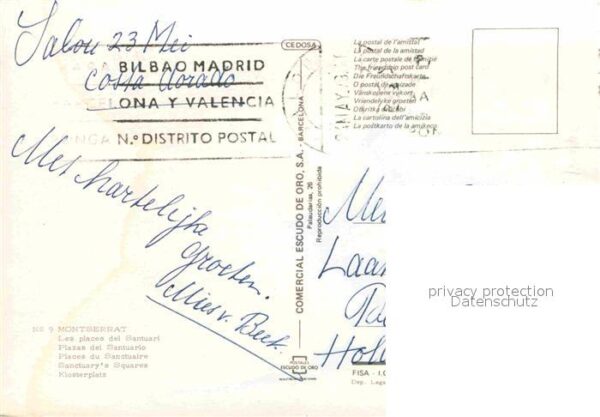 Salou 23 Mei
Costa Dorada
BILBAO MADRID
ELONA Y VALENCIA
N.º DISTRITO POSTAL
Met hartelijke
groeten.
Mies v. Beek.
No 9 MONTSERRAT
Les places del Santuari
Plazas del Santuario
Places du Sanctuaire
Sanctuary's Squares
Klosterplatz
CEDOSA
COMERCIAL ESCUDO DE ORO, S.A. - BARCELONA
Palaudarias, 26
Reproducción prohibida
POSTALES
ESCUDO DE ORO
La postal de l'amistat
La postal de la amistad
La carte postale de l'amitié
The friendship post card
Die Freundschaftskarte
O postal da amizade
Vänskapens vykort
Vriendelijke groeten
La cartolina dell'amicizia
La postkarto de la amikeco
Laan
Hol
FISA - I.
Dep. Lega
privacy protection
Datenschutz